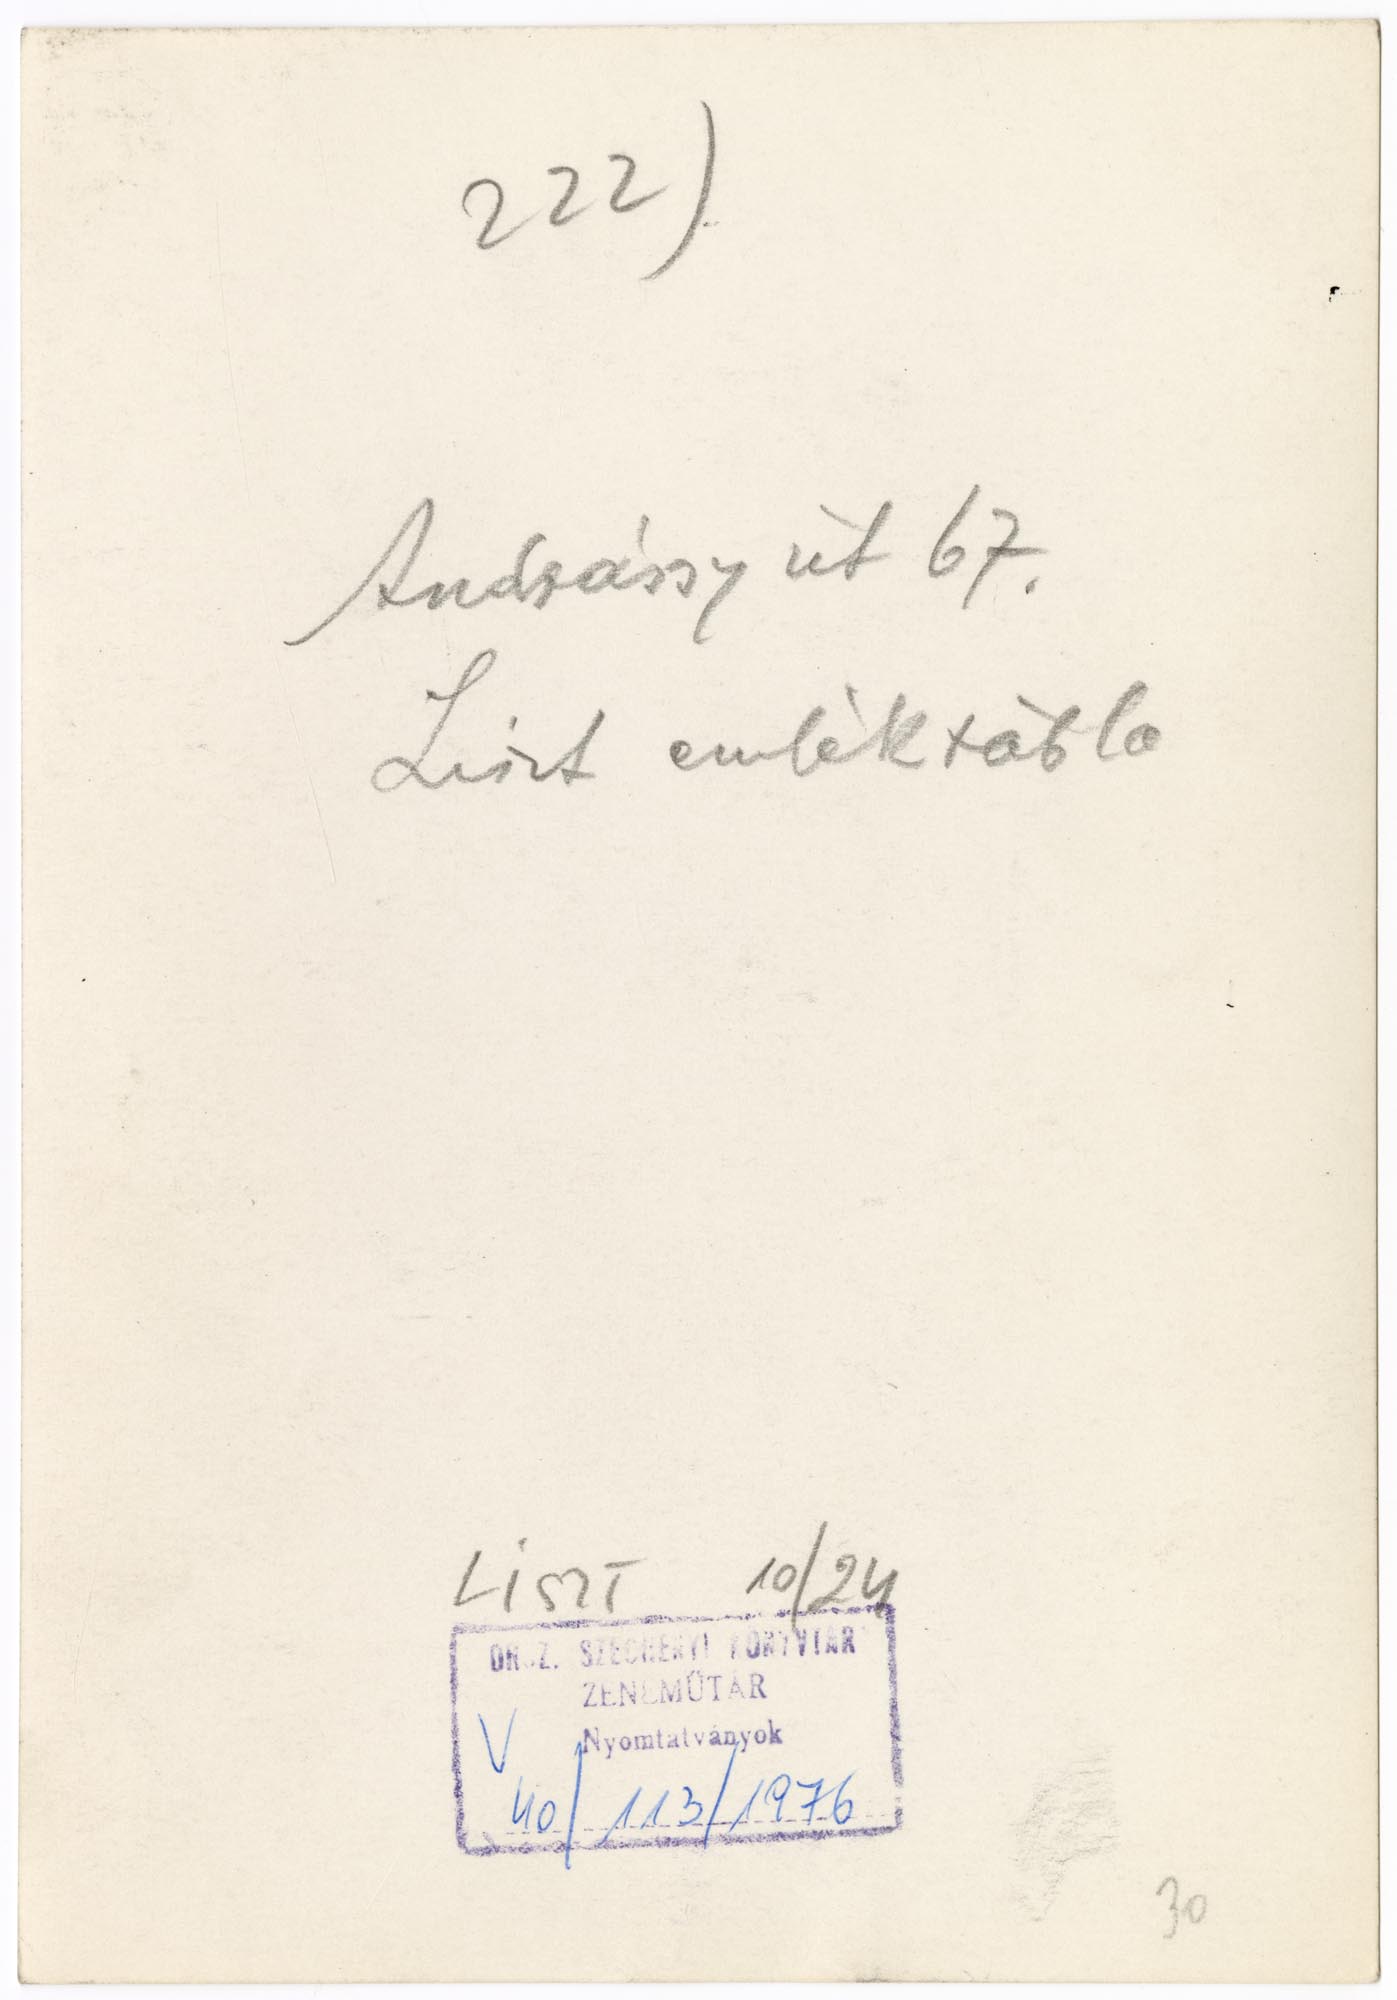 222)
Andrássy út 67.
Liszt emléktábla
LISZT 10/24
ORSZ. SZÉCHÉNYI KÖNYVTÁR
ZENEMŰTÁR
Nyomtatványok
V
40/113/1976
30